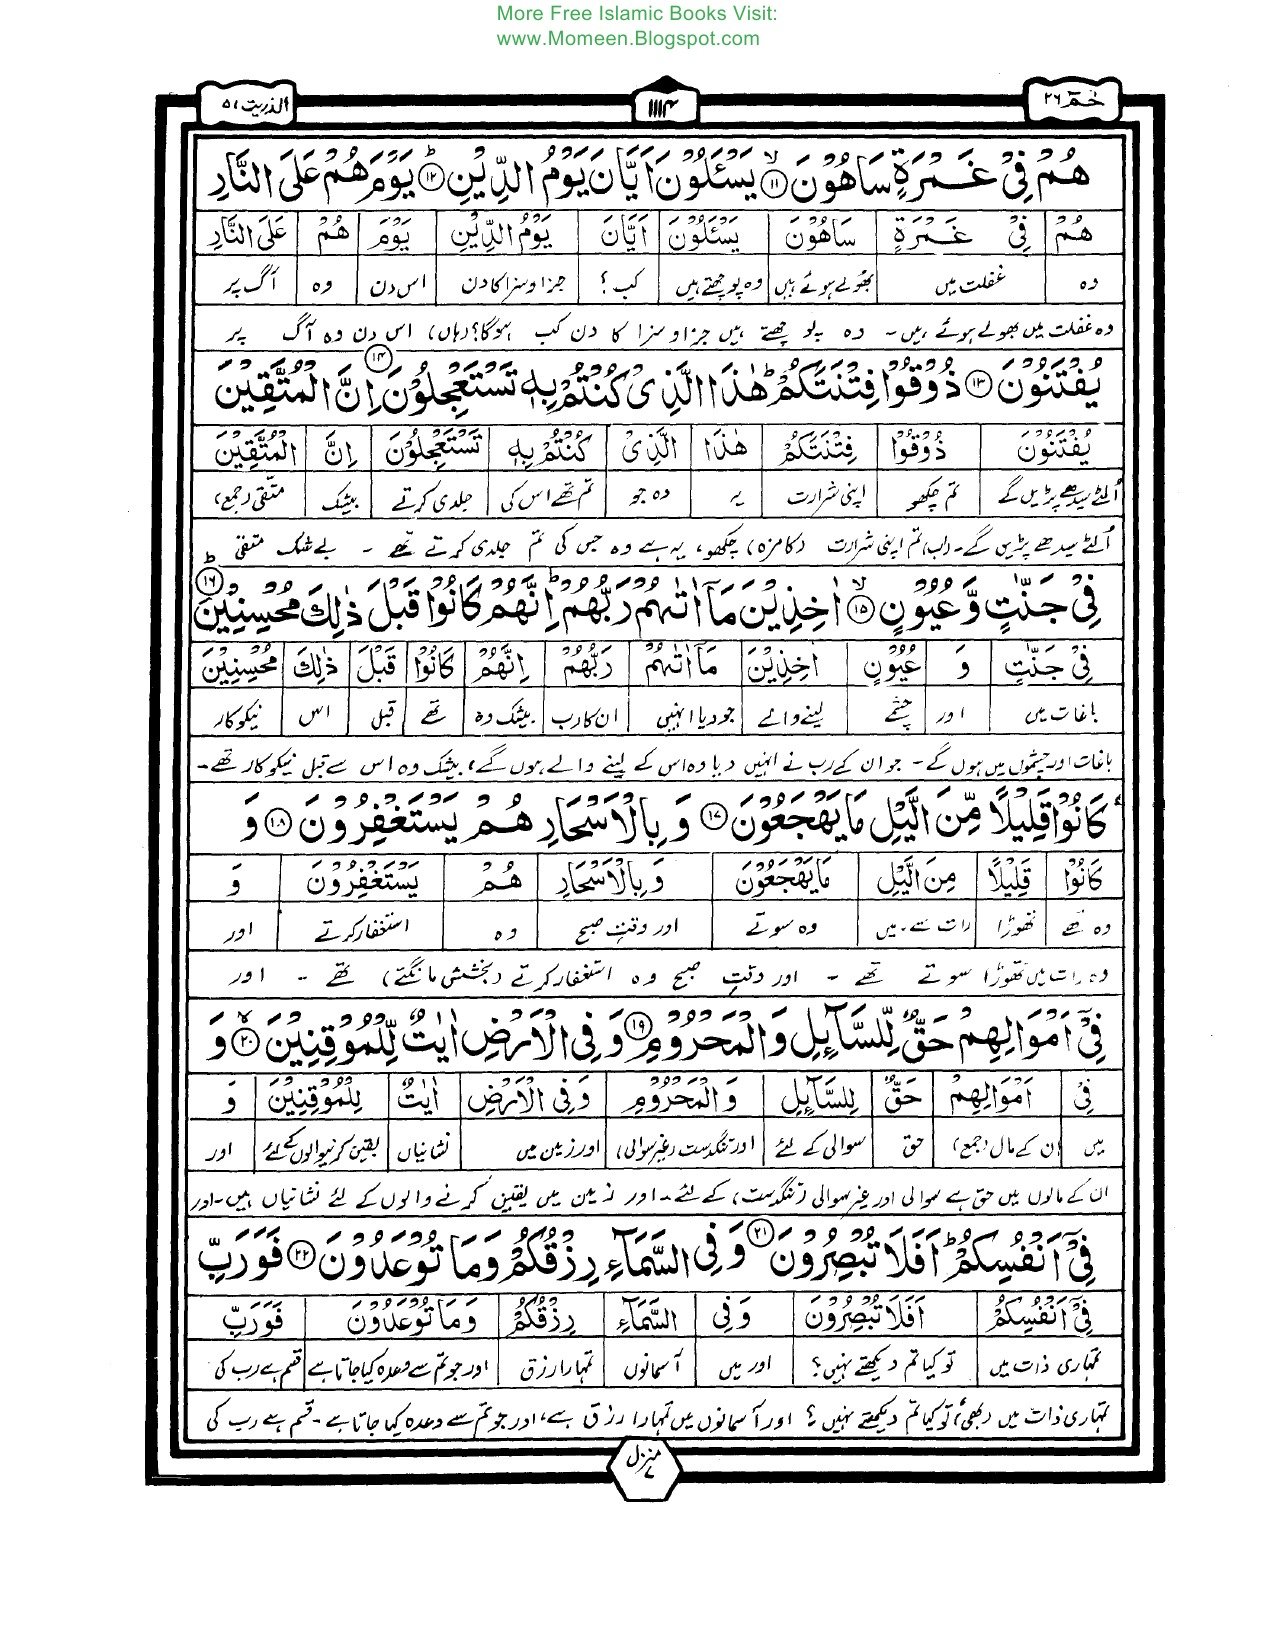 More Free Islamic Books Visit:
www.Momeen.Blogspot.com
حٰمٓ ٢٦ ١١١٤ الذّٰریٰت ٥١
هُمْ فِیْ غَمْرَةٍ سَاهُوْنَ ﴿۱۱﴾ یَسْـَٔلُوْنَ اَیَّانَ یَوْمُ الدِّیْنِ ﴿۱۲﴾ یَوْمَ هُمْ عَلَی النَّارِ
هُمْ فِیْ غَمْرَةٍ سَاهُوْنَ یَسْـَٔلُوْنَ اَیَّانَ یَوْمُ الدِّیْنِ یَوْمَ هُمْ عَلَی النَّارِ
وہ غفلت میں بھولے ہوئے ہیں وہ پوچھتے ہیں کب؟ جزا و سزا کا دن اس دن وہ آگ پر
وہ غفلت میں بھولے ہوئے ہیں۔ وہ پوچھتے ہیں جزا و سزا کا دن کب ہوگا؟ (ہاں) اس دن وہ آگ پر
یُفْتَنُوْنَ ﴿۱۳﴾ ذُوْقُوْا فِتْنَتَكُمْ هٰذَا الَّذِیْ كُنْتُمْ بِهٖ تَسْتَعْجِلُوْنَ ﴿۱۴﴾ اِنَّ الْمُتَّقِیْنَ
یُفْتَنُوْنَ ذُوْقُوْا فِتْنَتَكُمْ هٰذَا الَّذِیْ كُنْتُمْ بِهٖ تَسْتَعْجِلُوْنَ اِنَّ الْمُتَّقِیْنَ
اُلٹے سیدھے پڑیں گے تم چکھو اپنی شرارت یہ وہ جو تم تھے اس کی جلدی کرتے بیشک متقی (جمع)
اُلٹے سیدھے پڑیں گے۔ (اب) تم اپنی شرارت (کا مزہ) چکھو، یہ ہے وہ جس کی تم جلدی کرتے تھے ۔ بے شک متقی
فِیْ جَنّٰتٍ وَّ عُیُوْنٍ ﴿۱۵﴾ اٰخِذِیْنَ مَاۤ اٰتٰىهُمْ رَبُّهُمْ اِنَّهُمْ كَانُوْا قَبْلَ ذٰلِكَ مُحْسِنِیْنَ ﴿۱۶﴾
فِیْ جَنّٰتٍ وَ عُیُوْنٍ اٰخِذِیْنَ مَاۤ اٰتٰىهُمْ رَبُّهُمْ اِنَّهُمْ كَانُوْا قَبْلَ ذٰلِكَ مُحْسِنِیْنَ
باغات میں اور چشمے لینے والے جو دیا انہیں ان کا رب بیشک وہ تھے قبل اس نیکوکار
باغات اور چشموں میں ہوں گے۔ جو ان کے رب نے انہیں دیا وہ اس کے لینے والے ہوں گے، بیشک وہ اس سے قبل نیکو کار تھے۔
كَانُوْا قَلِیْلًا مِّنَ الَّیْلِ مَا یَهْجَعُوْنَ ﴿۱۷﴾ وَ بِالْاَسْحَارِ هُمْ یَسْتَغْفِرُوْنَ ﴿۱۸﴾ وَ
كَانُوْا قَلِیْلًا مِنَ الَّیْلِ مَا یَهْجَعُوْنَ وَ بِالْاَسْحَارِ هُمْ یَسْتَغْفِرُوْنَ وَ
وہ تھے تھوڑا رات سے۔ میں وہ سوتے اور وقتِ صبح وہ استغفار کرتے اور
وہ رات میں تھوڑا سوتے تھے ۔ اور وقتِ صبح وہ استغفار کرتے (بخشش مانگتے) تھے ۔ اور
فِیْۤ اَمْوَالِهِمْ حَقٌّ لِّلسَّآىِٕلِ وَ الْمَحْرُوْمِ ﴿۱۹﴾ وَ فِی الْاَرْضِ اٰیٰتٌ لِّلْمُوْقِنِیْنَ ﴿۲۰﴾ وَ
فِیْ اَمْوَالِهِمْ حَقٌّ لِلسَّآىِٕلِ وَ الْمَحْرُوْمِ وَ فِی الْاَرْضِ اٰیٰتٌ لِلْمُوْقِنِیْنَ وَ
میں ان کے مال (جمع) حق سوالی کے لئے اور تنگدست (غیر سوالی) اور زمین میں نشانیاں یقین کرنیوالوں کے لئے اور
ان کے مالوں میں حق ہے سوالی اور غیر سوالی (تنگدست) کے لئے۔ اور زمین میں یقین کرنے والوں کے لئے نشانیاں ہیں۔ اور
فِیْۤ اَنْفُسِكُمْ اَفَلَا تُبْصِرُوْنَ ﴿۲۱﴾ وَ فِی السَّمَآءِ رِزْقُكُمْ وَ مَا تُوْعَدُوْنَ ﴿۲۲﴾ فَوَرَبِّ
فِیْۤ اَنْفُسِكُمْ اَفَلَا تُبْصِرُوْنَ وَ فِی السَّمَآءِ رِزْقُكُمْ وَ مَا تُوْعَدُوْنَ فَوَرَبِّ
تمہاری ذات میں تو کیا تم دیکھتے نہیں؟ اور میں آسمانوں تمہارا رزق اور جو تم سے وعدہ کیا جاتا ہے قسم ہے رب کی
تمہاری ذات میں (بھی) تو کیا تم دیکھتے نہیں؟ اور آسمانوں میں تمہارا رزق ہے، اور جو تم سے وعدہ کیا جاتا ہے۔ قسم ہے رب کی
منزل ۷